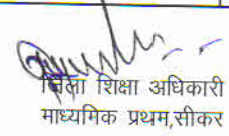 जिला शिक्षा अधिकारी
माध्यमिक प्रथम,सीकर